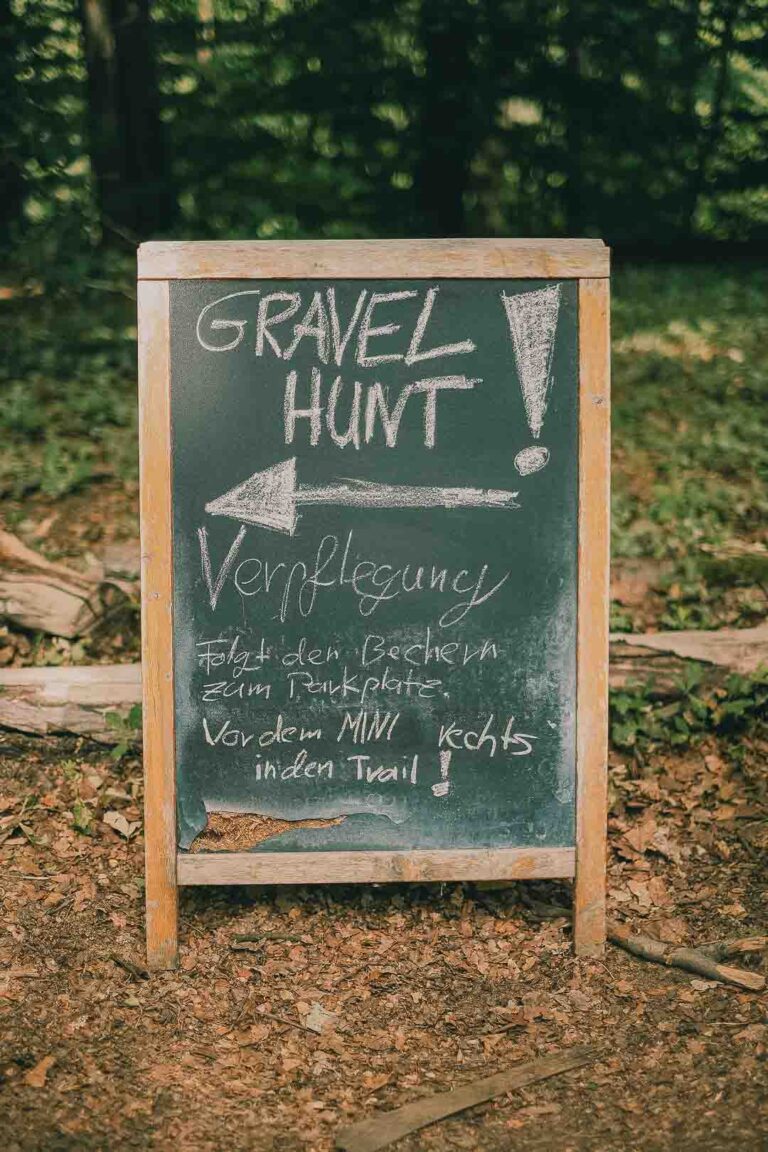 GRAVEL !
HUNT
Verpflegung
Folgt den Bechern
zum Parkplatz.
Vor dem MINI rechts
in den Trail !